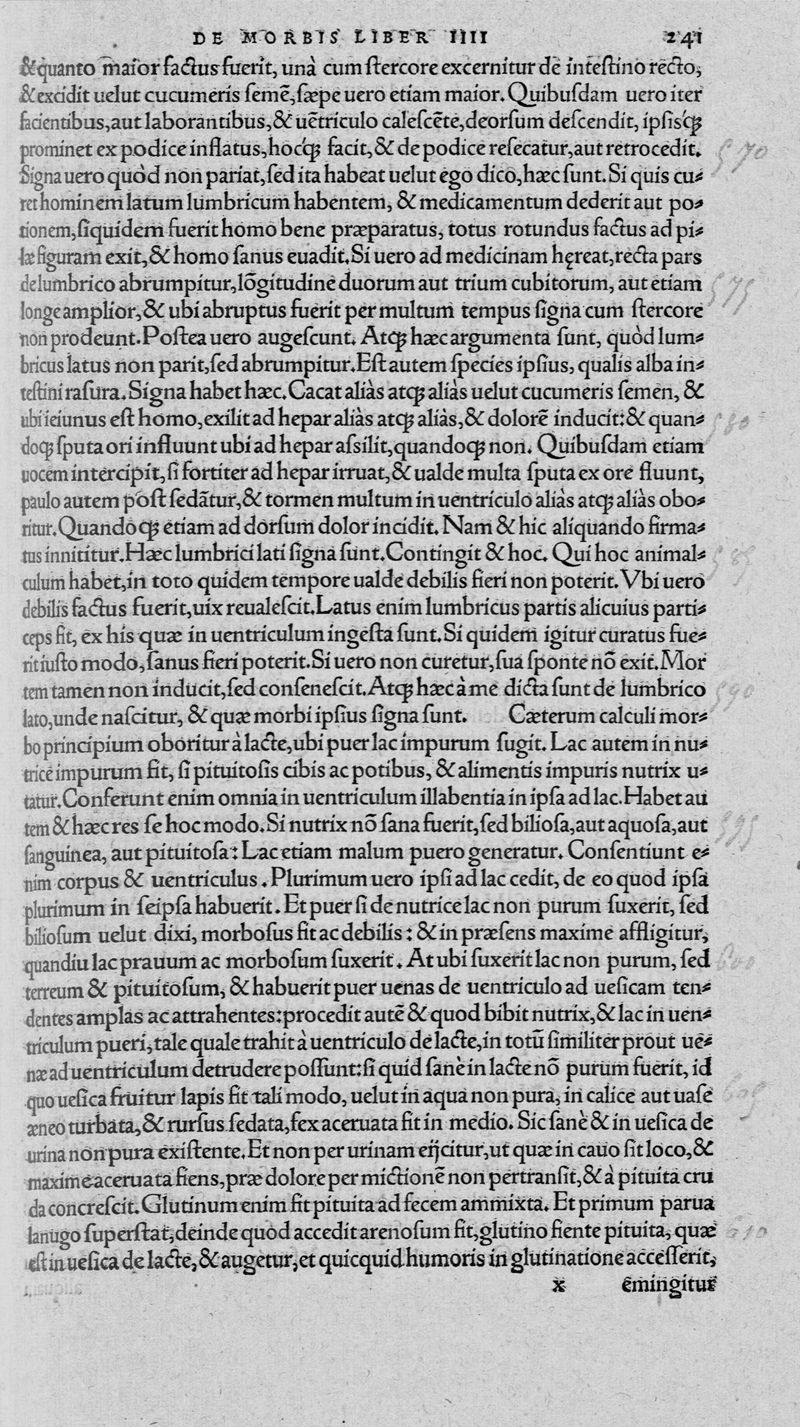 DE MORBIS LIBER IIII 241
&quanto maior factus fuerit, unà cum ſtercore excernitur de inteſtino recto,
& excidit uelut cucumeris ſemē, ſæpe uero etiam maior. Quibuſdam uero iter
facientibus, aut laborantibus, & uētriculo caleſcēte, deorſum deſcendit, ipſisq́;
prominet ex podice inflatus, hocq́; facit, & de podice reſecatur, aut retrocedit.
Signa uero quòd non pariat, ſed ita habeat uelut ego dico, hæc ſunt. Si quis cu⸗
ret hominem latum lumbricum habentem, & medicamentum dederit aut po⸗
tionem, ſiquidem fuerit homo bene præparatus, totus rotundus factus ad pi⸗
læ figuram exit, & homo ſanus euadit. Si uero ad medicinam hęreat, recta pars
de lumbrico abrumpitur, lōgitudine duorum aut trium cubitorum, aut etiam
longe amplior, & ubi abruptus fuerit per multum tempus ſigna cum ſtercore
non prodeunt. Poſtea uero augeſcunt. Atq; hæc argumenta ſunt, quòd lum⸗
bricus latus non parit, ſed abrumpitur. Eſt autem ſpecies ipſius, qualis alba in⸗
teſtini raſura. Signa habet hæc. Cacat aliàs atq; aliàs uelut cucumeris ſemen, &
ubi ieiunus eſt homo, exilit ad hepar aliàs atq; aliàs, & dolorē inducit: & quan⸗
doq; ſputa ori influunt ubi ad hepar aſsilit, quandoq; non. Quibuſdam etiam
uocem intercipit, ſi fortiter ad hepar irruat, & ualde multa ſputa ex ore fluunt,
paulo autem pòſt ſedātur, & tormen multum in uentriculo aliàs atq; aliàs obo⸗
ritur. Quandoq; etiam ad dorſum dolor incidit. Nam & hic aliquando firma⸗
tus innititur. Hæc lumbrici lati ſigna ſunt. Contingit & hoc. Qui hoc animal⸗
culum habet, in toto quidem tempore ualde debilis fieri non poterit. Vbi uero
debilis factus fuerit, uix reualeſcit. Latus enim lumbricus partis alicuius parti⸗
ceps fit, ex his quæ in uentriculum ingeſta ſunt. Si quidem igitur curatus fue⸗
rit iuſto modo, ſanus fieri poterit. Si uero non curetur, ſua ſponte nō exit. Mor
tem tamen non inducit, ſed conſeneſcit. Atq; hæc à me dicta ſunt de lumbrico
lato, unde naſcitur, & quæ morbi ipſius ſigna ſunt. Cæterum calculi mor⸗
bo principium oboritur à lacte, ubi puer lac impurum ſugit. Lac autem in nu⸗
trice impurum fit, ſi pituitoſis cibis ac potibus, & alimentis impuris nutrix u⸗
tatur. Conferunt enim omnia in uentriculum illabentia in ipſa ad lac. Habet au
tem & hæc res ſe hoc modo. Si nutrix nō ſana fuerit, ſed bilioſa, aut aquoſa, aut
ſanguinea, aut pituitoſa: Lac etiam malum puero generatur. Conſentiunt e⸗
nim corpus & uentriculus. Plurimum uero ipſi ad lac cedit, de eo quod ipſa
plurimum in ſeipſa habuerit. Et puer ſi de nutrice lac non purum ſuxerit, ſed
bilioſum uelut dixi, morboſus fit ac debilis: & in præſens maxime affligitur,
quandiu lac prauum ac morboſum ſuxerit. At ubi ſuxerit lac non purum, ſed
terreum & pituitoſum, & habuerit puer uenas de uentriculo ad ueſicam ten⸗
dentes amplas ac attrahentes: procedit autē & quod bibit nutrix, & lac in uen⸗
triculum pueri, tale quale trahit à uentriculo de lacte, in totū ſimiliter prout ue⸗
næ ad uentriculum detrudere poſſunt: ſi quid ſanè in lacte nō purum fuerit, id
quo ueſica fruitur lapis fit tali modo, uelut in aqua non pura, in calice aut uaſe
æneo turbata, & rurſus ſedata, fex aceruata fit in medio. Sic ſanè & in ueſica de
urina non pura exiſtente. Et non per urinam eijcitur, ut quæ in cauo ſit loco, &
maxime aceruata fiens, præ dolore per mictionē non pertranſit, & à pituita cru
da concreſcit. Glutinum enim fit pituita ad fecem ammixta. Et primum parua
lanugo ſuperſtat, deinde quod accedit arenoſum fit, glutino fiente pituita, quæ
eſt in ueſica de lacte, & augetur, et quicquid humoris in glutinatione acceſſerit,
x emingitur